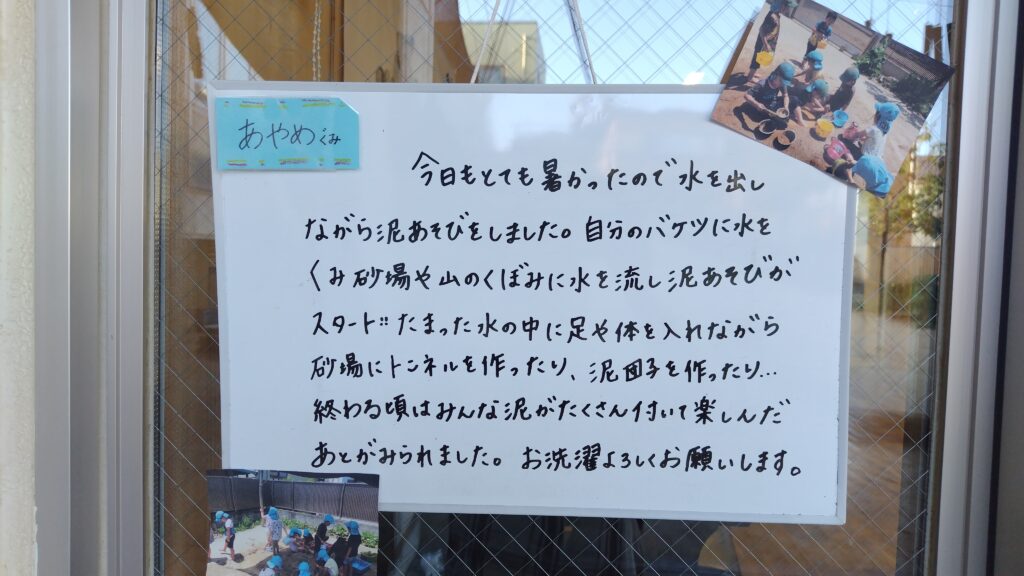 あやめくみ
今日もとても暑かったので水を出し
ながら泥あそびをしました。自分のバケツに水を
くみ砂場や山のくぼみに水を流し泥あそびが
スタート!! たまった水の中に足や体を入れながら
砂場にトンネルを作ったり、泥団子を作ったり…
終わる頃はみんな泥がたくさん付いて楽しんだ
あとがみられました。お洗濯よろしくお願いします。